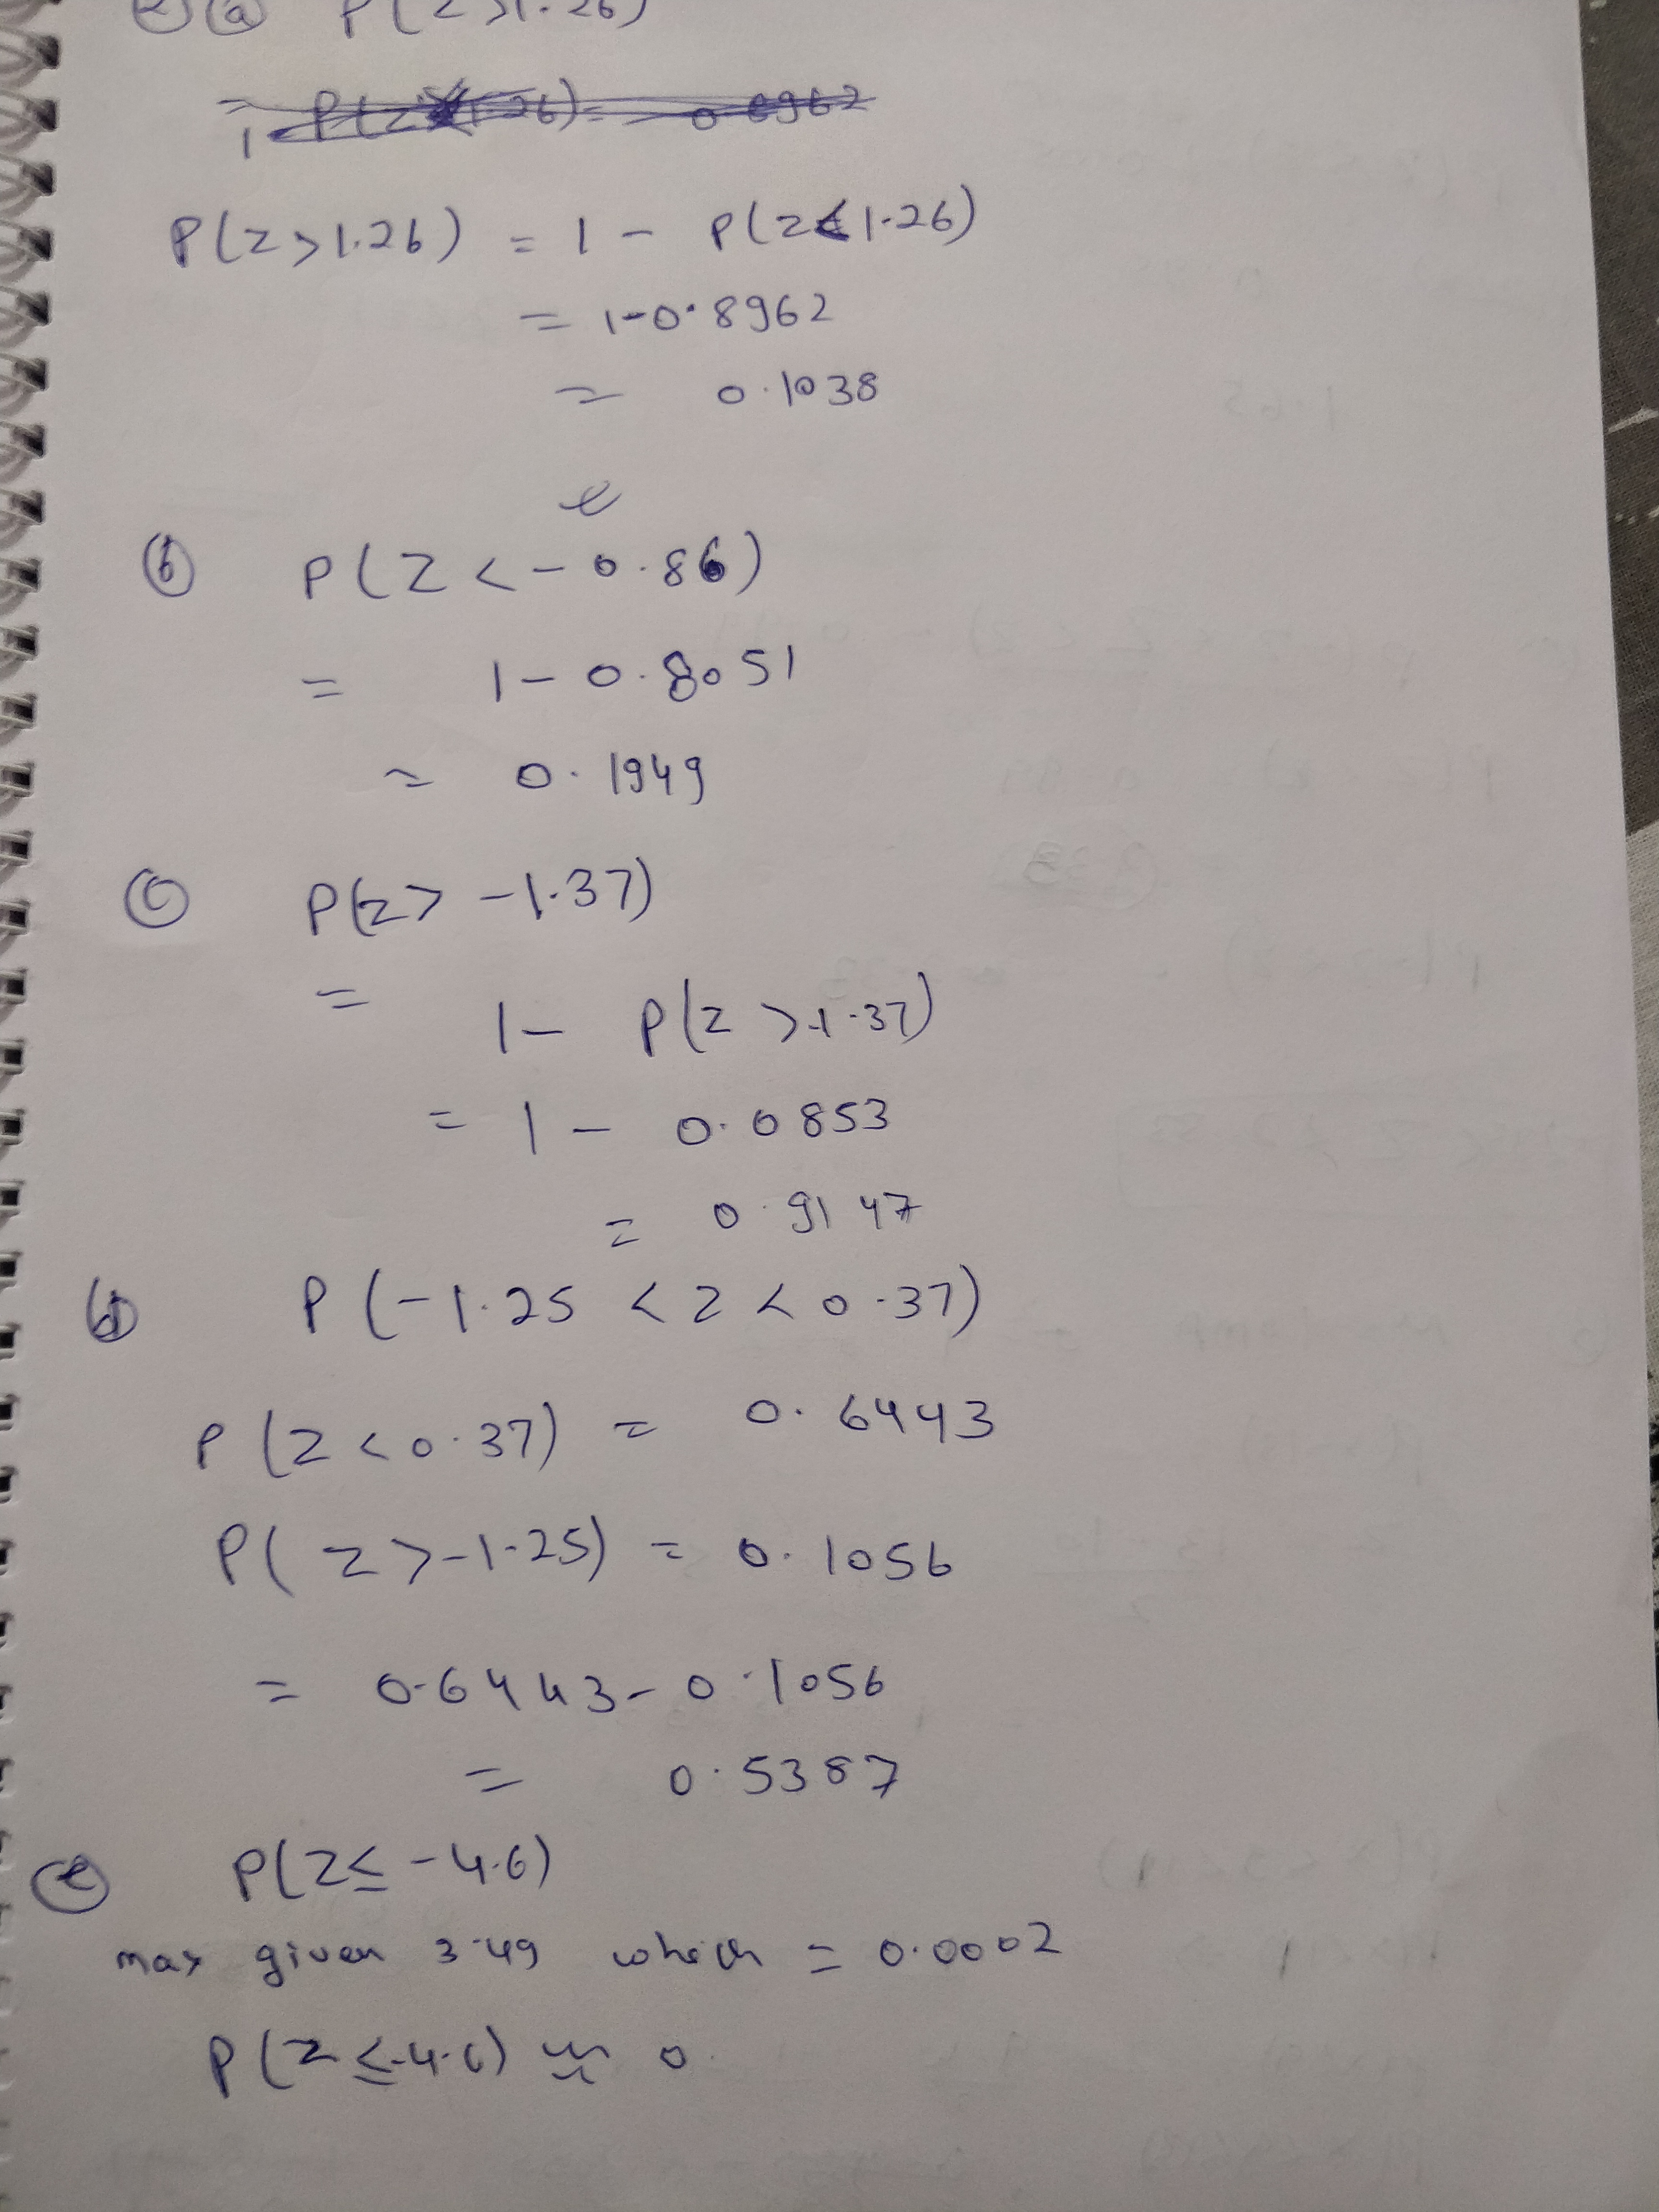 ② ⓐ P(Z>1.26)
P(Z>1.26) = 1 - P(Z<1.26)
= 1-0.8962
= 0.1038
ⓑ P(Z<-0.86)
= 1-0.8051
= 0.1949
ⓒ P(Z> -1.37)
= 1- P(Z >-1.37)
= 1 - 0.0853
= 0.9147
ⓓ P(-1.25 < Z < 0.37)
P(Z<0.37) = 0.6443
P(Z>-1.25) = 0.1056
= 0.6443-0.1056
= 0.5387
ⓔ P(Z≤ -4.6)
max given 3.49 which = 0.0002
P(Z≤-4.6) ≈ 0